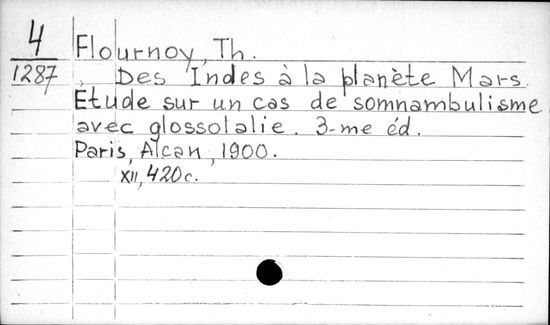 4
1287
Flournoy, Th.
Des Indes à la planète Mars.
Etude sur un cas de somnambulisme
avec glossolalie. 3-me éd.
Paris, Alcan, 1900.
XII, 420c.